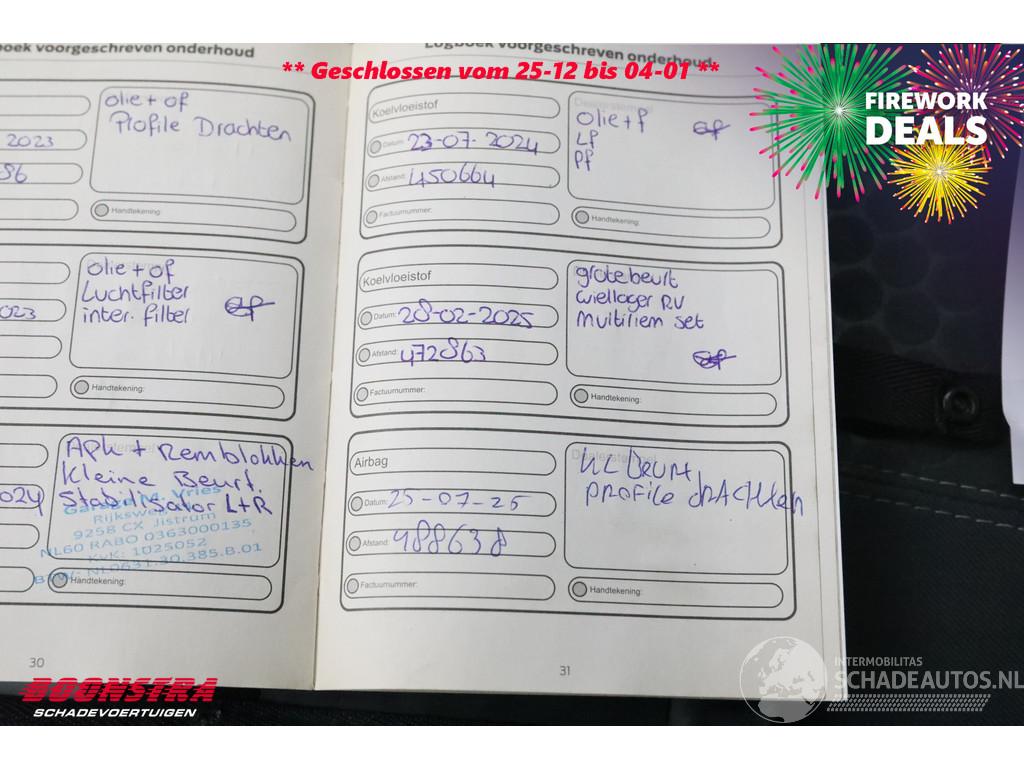 Logboek voorgeschreven onderhoud
** Geschlossen vom 25-12 bis 04-01 **
FIREWORK
DEALS
olie + of
Profile Drachten
2023
Handtekening:
olie + of
Luchtfilter
inter. filter
023
Handtekening:
APK + Remblokken
Kleine Beurt.
Stabilisator L+R
2024
Garage M. Vries
Rijksweg
9258 CX Jistrum
NL60 RABO 0363000135
KvK: 1025052
BTW: NL0631.30.385.B.01
Handtekening:
30
Logboek voorgeschreven onderhoud
Koelvloeistof
Datum: 23-07-2024
Afstand: 450664
Factuurnummer:
Dealerstempel
olie + f
Lf
Pf
Handtekening:
Koelvloeistof
Datum: 28-02-2025
Afstand: 472863
Factuurnummer:
grote beurt
wiellager RV
Multiriem set
Handtekening:
Airbag
Datum: 25-07-25
Afstand: 488638
Factuurnummer:
Dealerstempel
KL Beurt
PROFILE DRACHten
Handtekening:
31
BOONSTRA
SCHADEVOERTUIGEN
INTERMOBILITAS
SCHADEAUTOS.NL